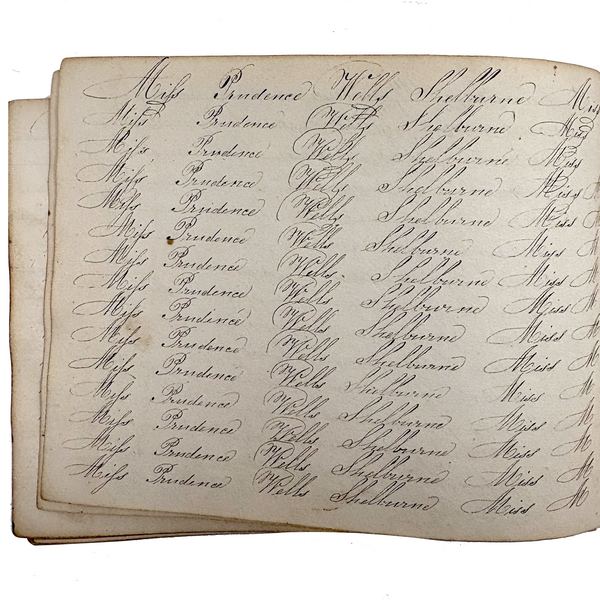 Miſs Prudence Wells Shelburne Miss
Miſs Prudence Wells Shelburne Miss
Miſs Prudence Wells Shelburne Miss
Miſs Prudence Wells Shelburne Miss
Miſs Prudence Wells Shelburne Miss
Miſs Prudence Wells Shelburne Miss
Miſs Prudence Wells Shelburne Miss
Miſs Prudence Wells Shelburne Miss
Miſs Prudence Wells Shelburne Miss
Miſs Prudence Wells Shelburne Miss
Miſs Prudence Wells Shelburne Miss
Miſs Prudence Wells Shelburne Miss
Miſs Prudence Wells Shelburne Miss
Miſs Prudence Wells Shelburne Miss
Miſs Prudence Wells Shelburne Miss